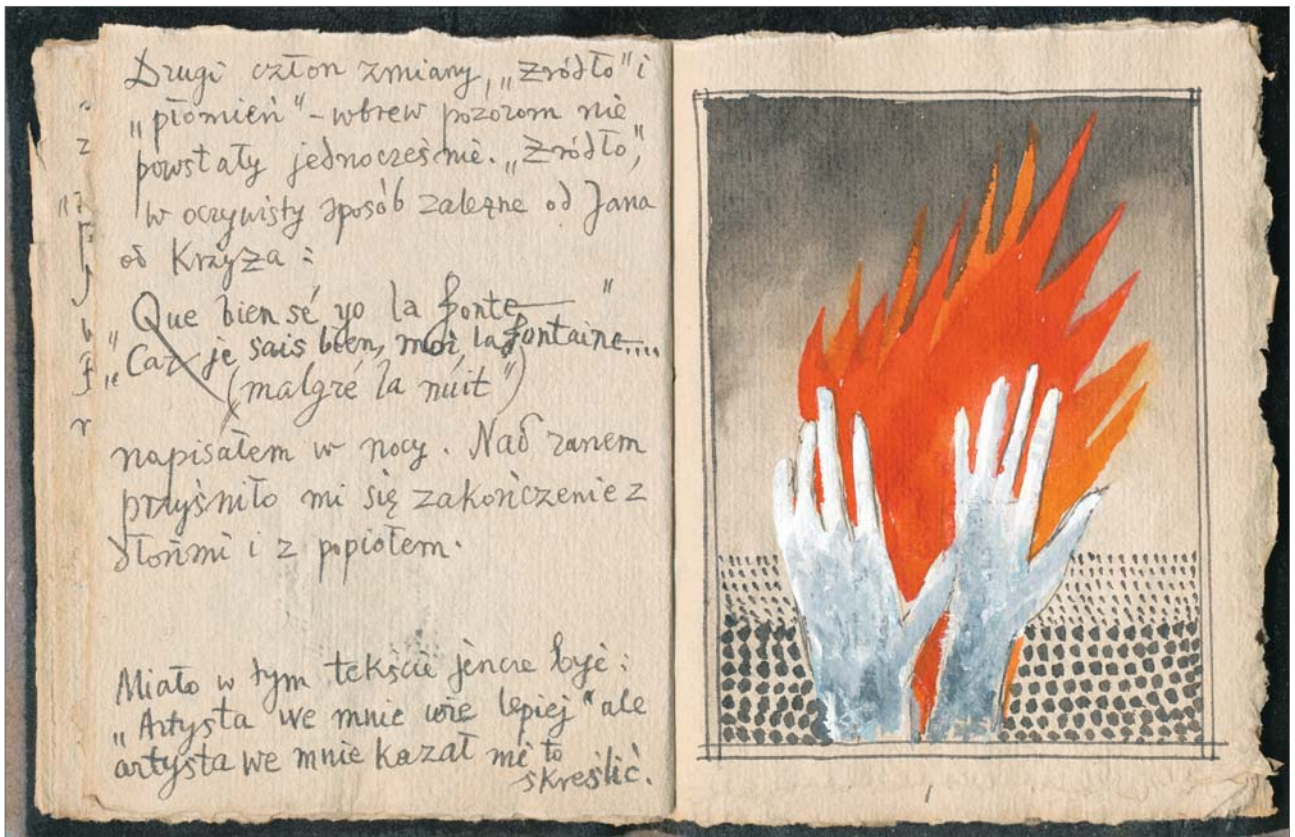 Drugi człon zmiany, „Źródło" i
„płomień" - wbrew pozorom nie
powstały jednocześnie. „Źródło",
w oczywisty sposób zależne od Jana
od Krzyża :
„Que bien sé yo la fonte— "
„Car je sais bien, moi, la fontaine....
(malgré la nuit")
napisałem w nocy. Nad ranem
przyśniło mi się zakończenie z
dłońmi i z popiołem.
Miało w tym tekście jeszcze być :
„Artysta we mnie wie lepiej" ale
artysta we mnie kazał mi to
skreślić.